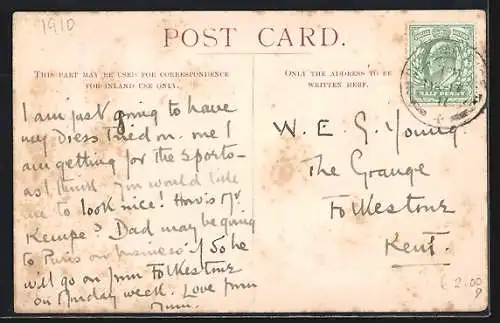 1910
POST CARD.
THIS PART MAY BE USED FOR CORRESPONDENCE
FOR INLAND USE ONLY.
ONLY THE ADDRESS TO BE
WRITTEN HERE.
HALF PENNY
I am just going to have
my dress tried on. one I
am getting for the sports-
as I think you would like
me to look nice! How's Mr
Kempe? Dad may be going
to Paris on business. If so he
will go on from Folkestone
on Monday week. Love from
W. E. G. Young
The Grange
Folkestone
Kent.
£2.00